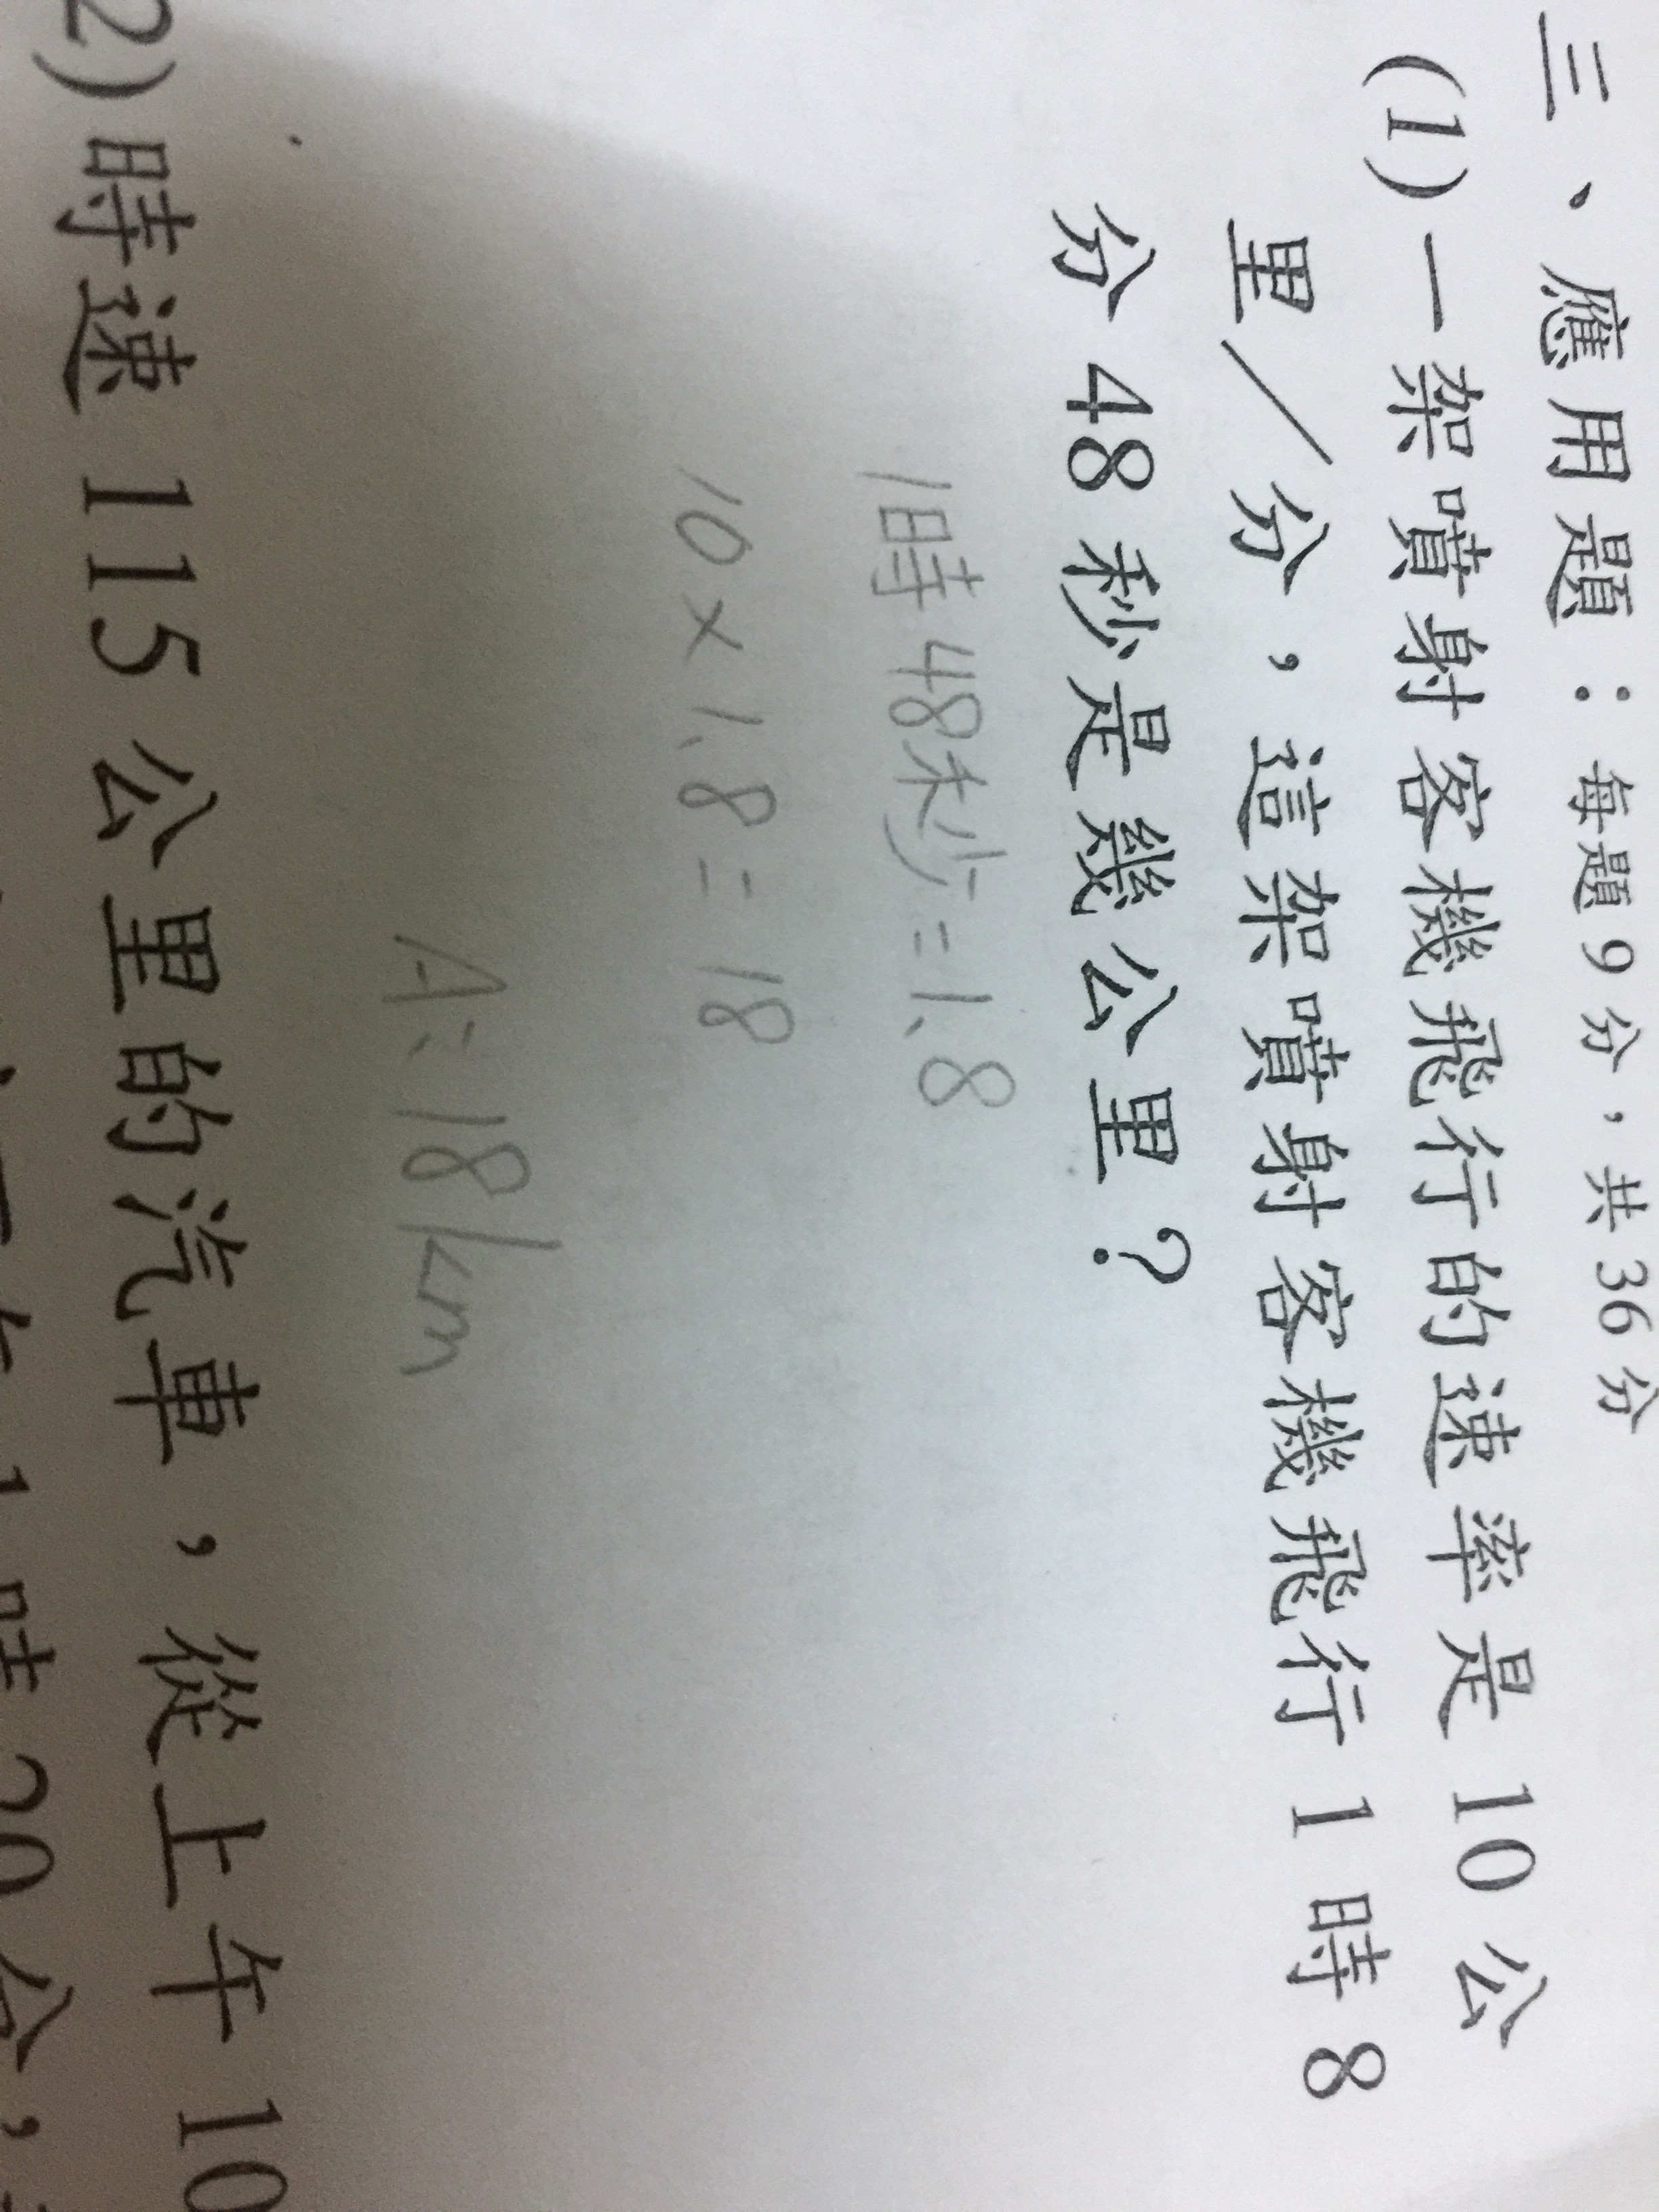 三、應用題：每題9分，共36分
(1)一架噴射客機飛行的速率是10公
里／分，這架噴射客機飛行1時8
分48秒是幾公里？
1時48秒=1.8
10×1.8=18
A:18km
2)時速115公里的汽車，從上午10